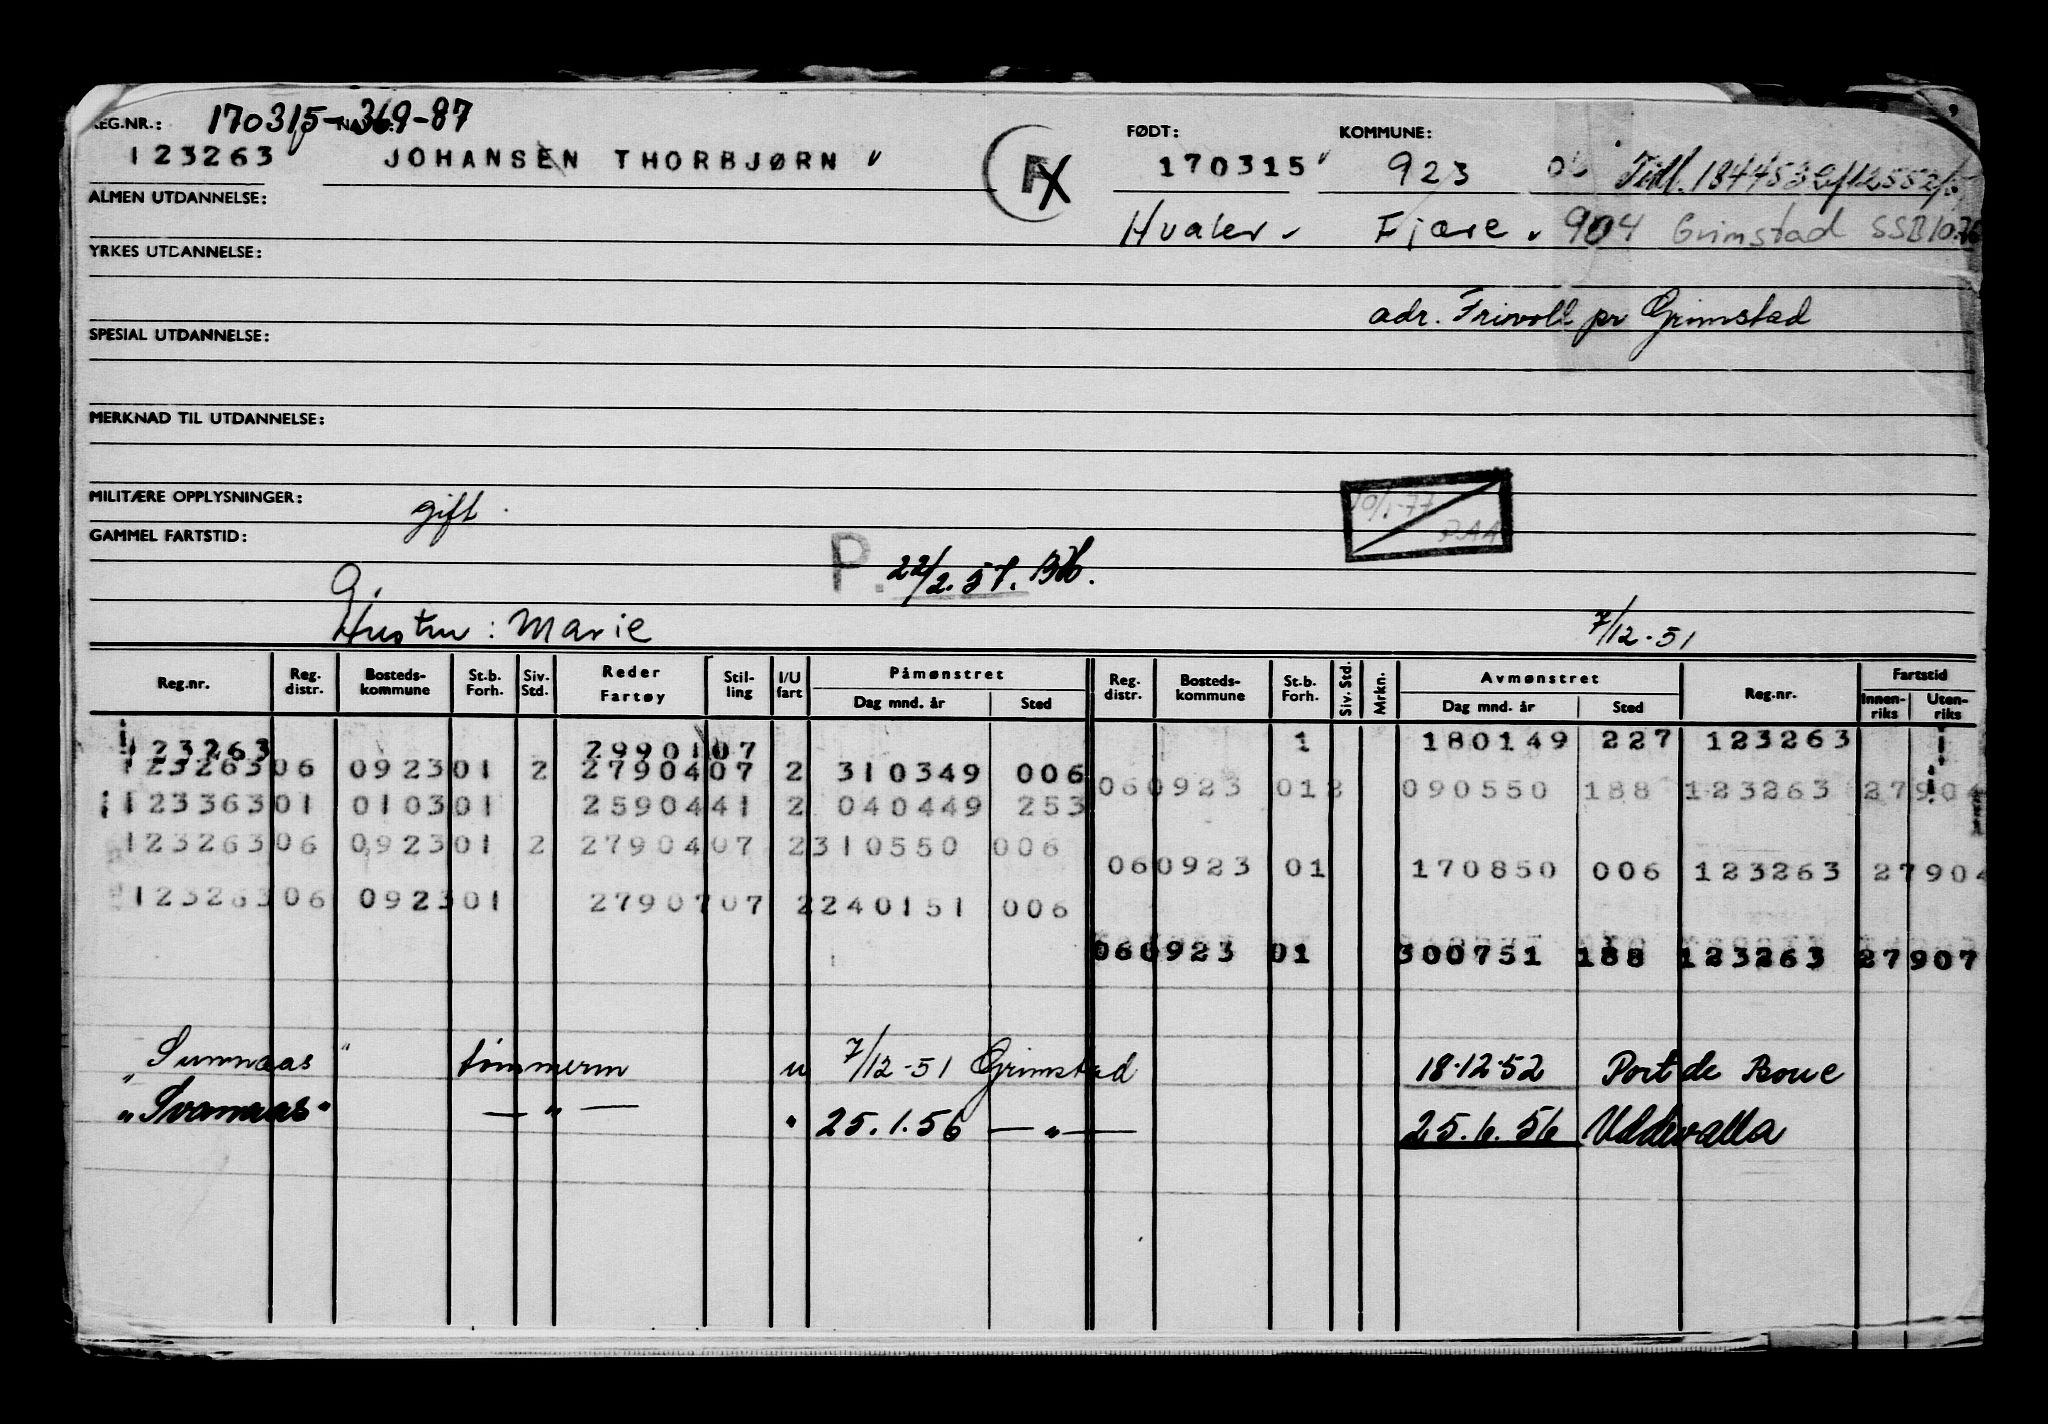 170315-369-87
REG.NR.: FØDT: KOMMUNE:
123263 JOHANSEN THORBJØRN 170315 923
ALMEN UTDANNELSE: Hvaler Fjære 904 Grimstad SSB 10.76
YRKES UTDANNELSE:
adr. Frivold pr Grimstad
SPESIAL UTDANNELSE:
MERKNAD TIL UTDANNELSE:
MILITÆRE OPPLYSNINGER: gift.
10/1-77
GAMMEL FARTSTID:
P. 22/2.57.
G.
Hustru: Marie 7/12-51
Reg.nr. Reg. distr. Bosteds-kommune St.b. Forh. Siv. Std. Reder Fartøy Stil-ling I/U fart Påmønstret Dag mnd. år Sted Reg. distr. Bosteds-kommune St.b. Forh. Siv. Std. Mrkn. Avmønstret Dag mnd. år Sted Reg.nr. Fartstid Innen-riks Uten-riks
123263 2990107 1 180149 227 123263
123263 06 0923 01 2 27904 07 2 310349 006
06 0923 01 2 090550 188 123263 27904
123363 01 0103 01 25904 41 2 040449 253
123263 06 0923 01 2 27904 07 2 310550 006
06 0923 01 170850 006 123263 27904
123263 06 0923 01 27907 07 2 240151 006
06 0923 01 300751 188 123263 27907
"Sunnaas" tømmerm u 7/12-51 Grimstad 18-12-52 Port de Bouc
"Svanaas" — " — " 25.1.56 — " — 25.6.56 Uddevalla